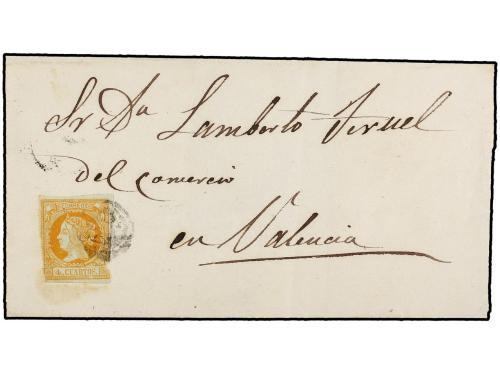 Sr Dn Lamberto Teruel
del comercio
en Valencia
CORREOS
4 CUARTOS